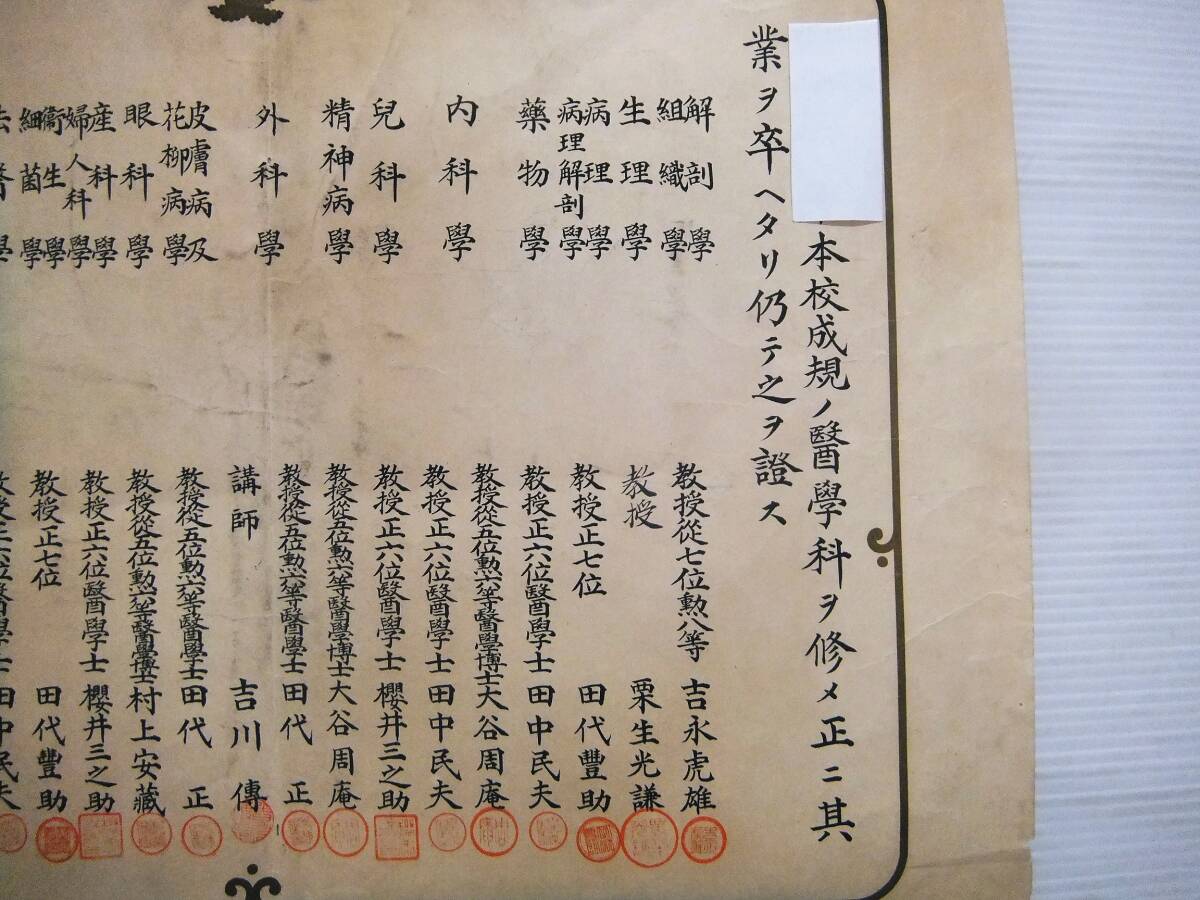 本校成規ノ醫學科ヲ修メ正ニ其
業ヲ卒ヘタリ仍テ之ヲ證ス
解剖學
組織學
生理學
病理學
病理解剖學
藥物學
內科學
兒科學
精神病學
外科學
皮膚病及
花柳病學
眼科學
産科學
婦人科學
衞生學
細菌學
教授從七位勲八等 吉永虎雄
教授 栗生光謙
教授正七位 田代豐助
教授正六位醫學士 田中民夫
教授從五位勲六等醫學博士 大谷周庵
教授正六位醫學士 田中民夫
教授正六位醫學士 櫻井三之助
教授從五位勲六等醫學博士 大谷周庵
教授從五位勲六等醫學士 田代正
講師 吉川傳
教授從五位勲六等醫學士 田代正
教授從五位勲六等醫學博士 村上安藏
教授正六位醫學士 櫻井三之助
教授正七位 田代豐助
教授正六位醫學士 田中民夫